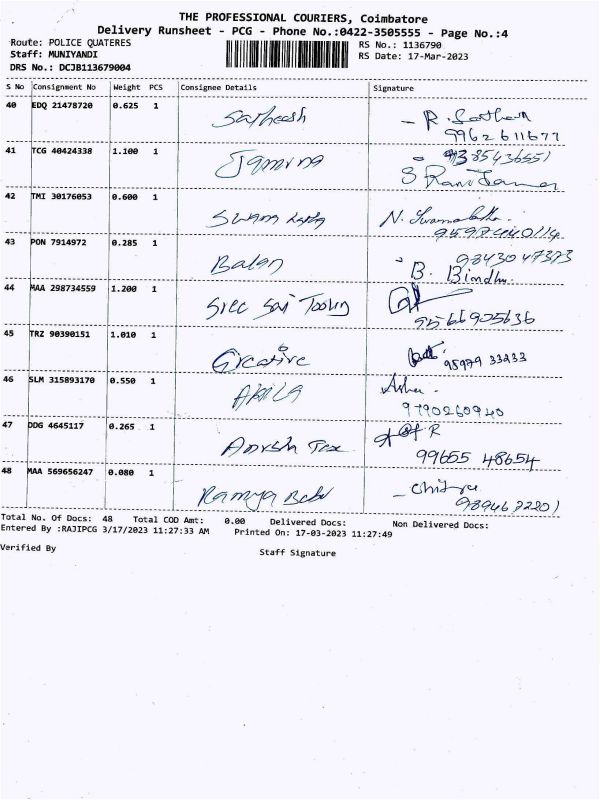 THE PROFESSIONAL COURIERS, Coimbatore
Delivery Runsheet - PCG - Phone No.:0422-3505555 - Page No.:4
Route: POLICE QUATERES RS No.: 1136790
Staff: MUNIYANDI RS Date: 17-Mar-2023
DRS No.: DCJB113679004
S No Consignment No Weight PCS Consignee Details Signature
40 EDQ 21478720 0.625 1 Satheesh
9962611677
41 TCG 40424338 1.100 1
42 TMI 30176053 0.600 1
43 PON 7914972 0.285 1 Balan 9843047373
B. Bindhu
44 MAA 298734559 1.200 1 Sree Sai Tooling
9566905636
45 TRZ 90390151 1.010 1 Greative 95979 33233
46 SLM 315893170 0.550 1 Akila
9790260940
47 DDG 4645117 0.265 1
99655 48654
48 MAA 569656247 0.080 1 Ramya
Total No. Of Docs: 48 Total COD Amt: 0.00 Delivered Docs: Non Delivered Docs:
Entered By :RAJIPCG 3/17/2023 11:27:33 AM Printed On: 17-03-2023 11:27:49
Verified By Staff Signature